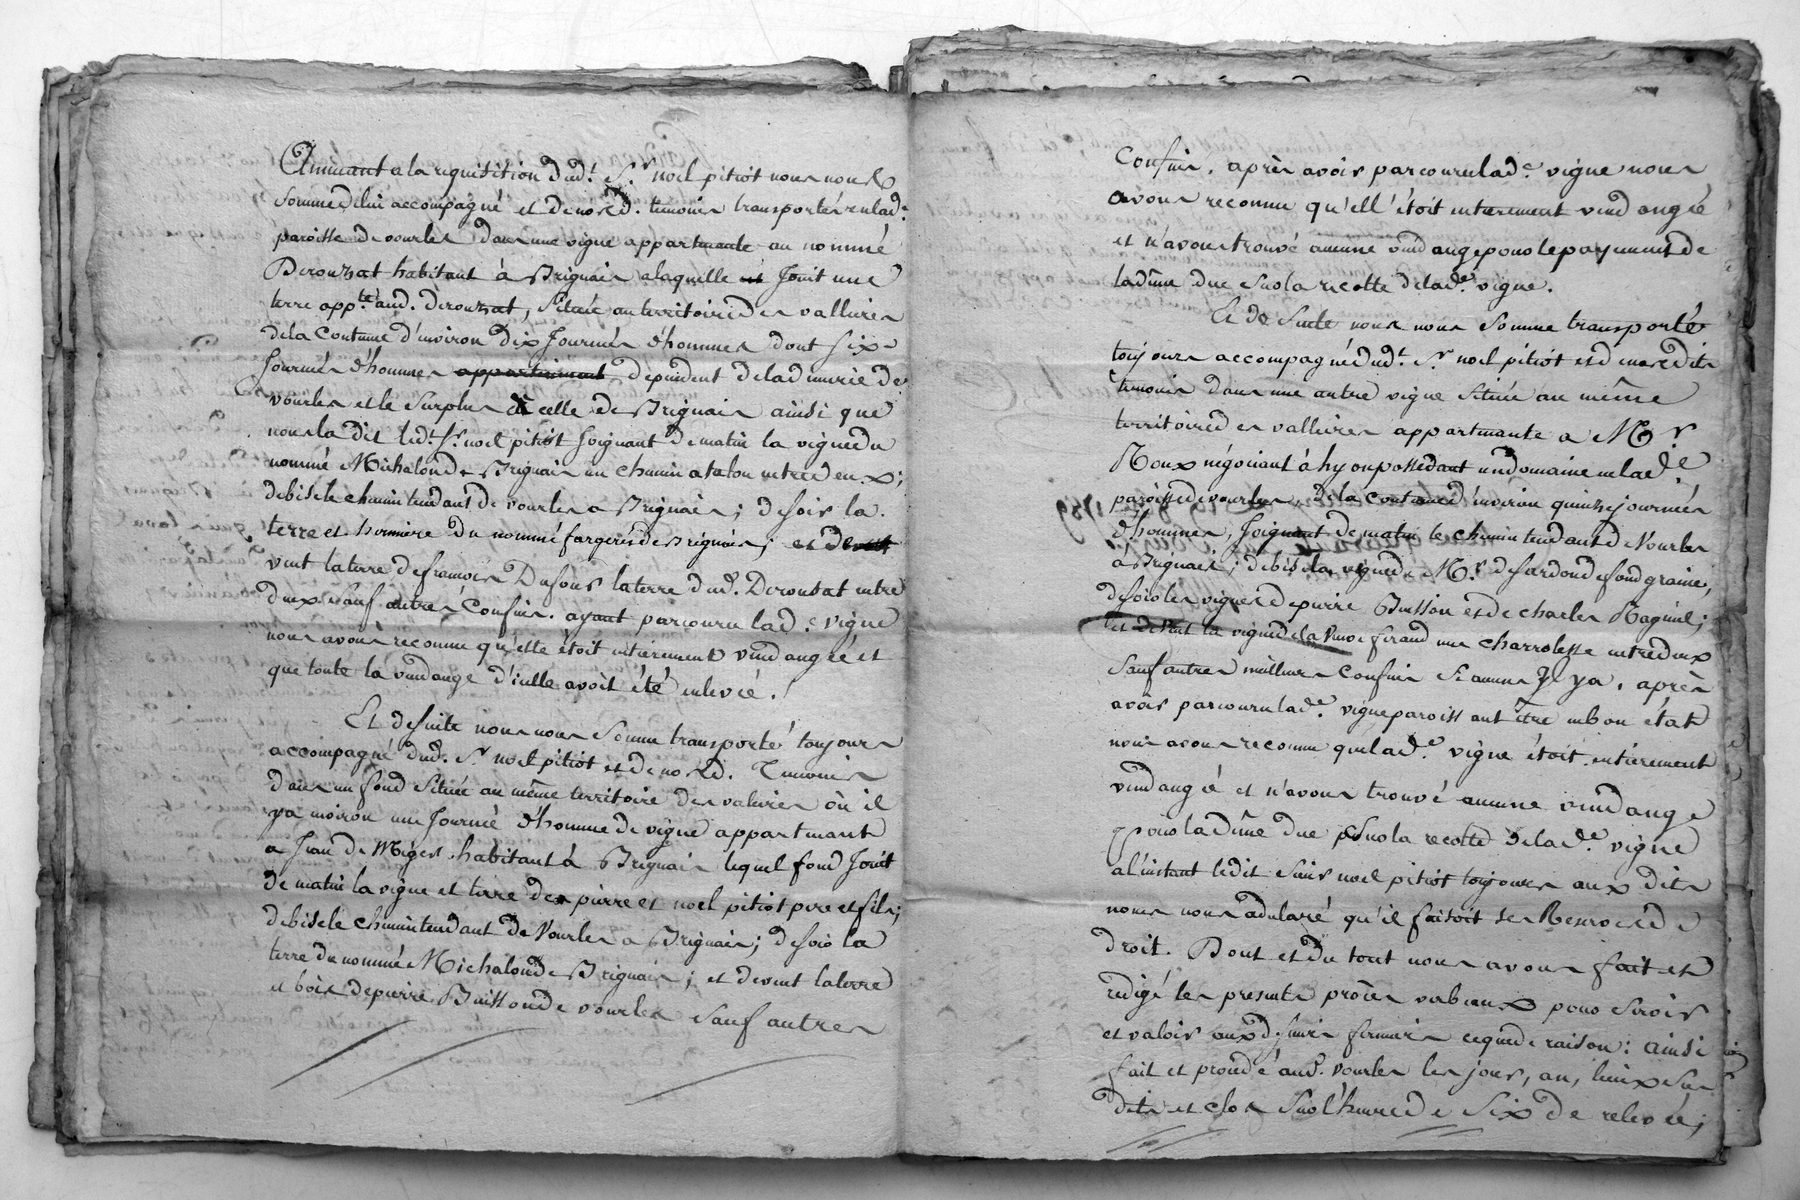 Amuant a la requisition dud.t S.r noel pitiot nous nous
Somme de lui accompagné et de nosd. temoins transportés en lad.e
paroisse de vourles dans une vigne appartenante au nommé
Derouzat habitant à Brignais a laquelle Joint une
terre app.te aud. derouzat, Située au territoire des vallieres
de la Contenue d'environ dix Journés d'hommes dont six
Journés d'hommes appartiennent dependent de la dimerie de
vourles et le Surplus à celle de Brignais ainsi que
nous la dit led.t S.r noel pitiot Joignant de matin la vigne du
nommé Michalon de Brignais un chemin a talon entre deux;
de bise le chemin tendant de vourles a Brignais; de soir la
terre et hermiere du nommé fargere de Brignais; et de
vent la terre de francois Dufour la terre dud. Derouzat entre
deux sauf autres Confins. ayant parcouru lad.e vigne
nous avons reconnu qu'elle étoit entierement vendangée et
que toute la vendange d'icelle avoit été enlevée.
Et de suite nous nous Somme transporté toujours
accompagné dud. S.r noel pitiot et de nosd. Temoins
dans un fond Située au même territoire des valieres où il
ya environ une Journée d'homme de vigne appartenant
a Jean de Miges habitant à Brignais lequel fond Joint
de matin la vigne et terre de pierre et noel pitiot pere et fils;
de bise le chemin tendant de Vourles a Brignais; de soir la
terre du nommé Michalon de Brignais; et de vent la terre
et bois de pierre Buisson de vourles Sauf autres
Confins. après avoir parcouru lad.e vigne nous
avons reconnu qu'ell'étoit entierement vendangée
et n'avons trouvé aucune vendange pour le payement de
la dîme due Sur la recolte de lad.e vigne.
Et de Suite nous nous Somme transporté
toujours accompagné dud.t S.r noel pitiot et de nosdits
temoins dans une autre vigne Située au même
territoire des vallieres appartenante a M.r
Roux négociant à Lyon possédant un domaine en lad.e
paroisse de vourles, de la contenue d'environ quinze journées
d'hommes, Joignant de matin le chemin tendant de Vourles
à Brignais; de bise la vigne de M.r de sardon de fondgraine,
de soir les vignes de pierre Buisson et de charles Raginel;
et de vent la vigne de la Veuve feraud une charroliere entre deux
Sauf autres meilleurs Confins Si aucuns Y ya, après
avoir parcouru lad.e vigne paroissant être en bon état
nous avons reconnu que lad.e vigne étoit entierement
vendangée et n'avons trouvé aucune vendange
pour la dîme due Sur la recolte de lad.e vigne
a l'instant ledit Sieur noel pitiot toujours aux dits
noms nous a declaré qu'il faisoit ses Reserves de
droit. Dont et du tout nous avons fait et
redigé les presents procès verbaux pour servir
et valoir ce que de raison: ainsi
fait et procédé aud. vourles les jour, an, lieux Sus
dits et clos Sur l'heure de Six de relevée;
1789